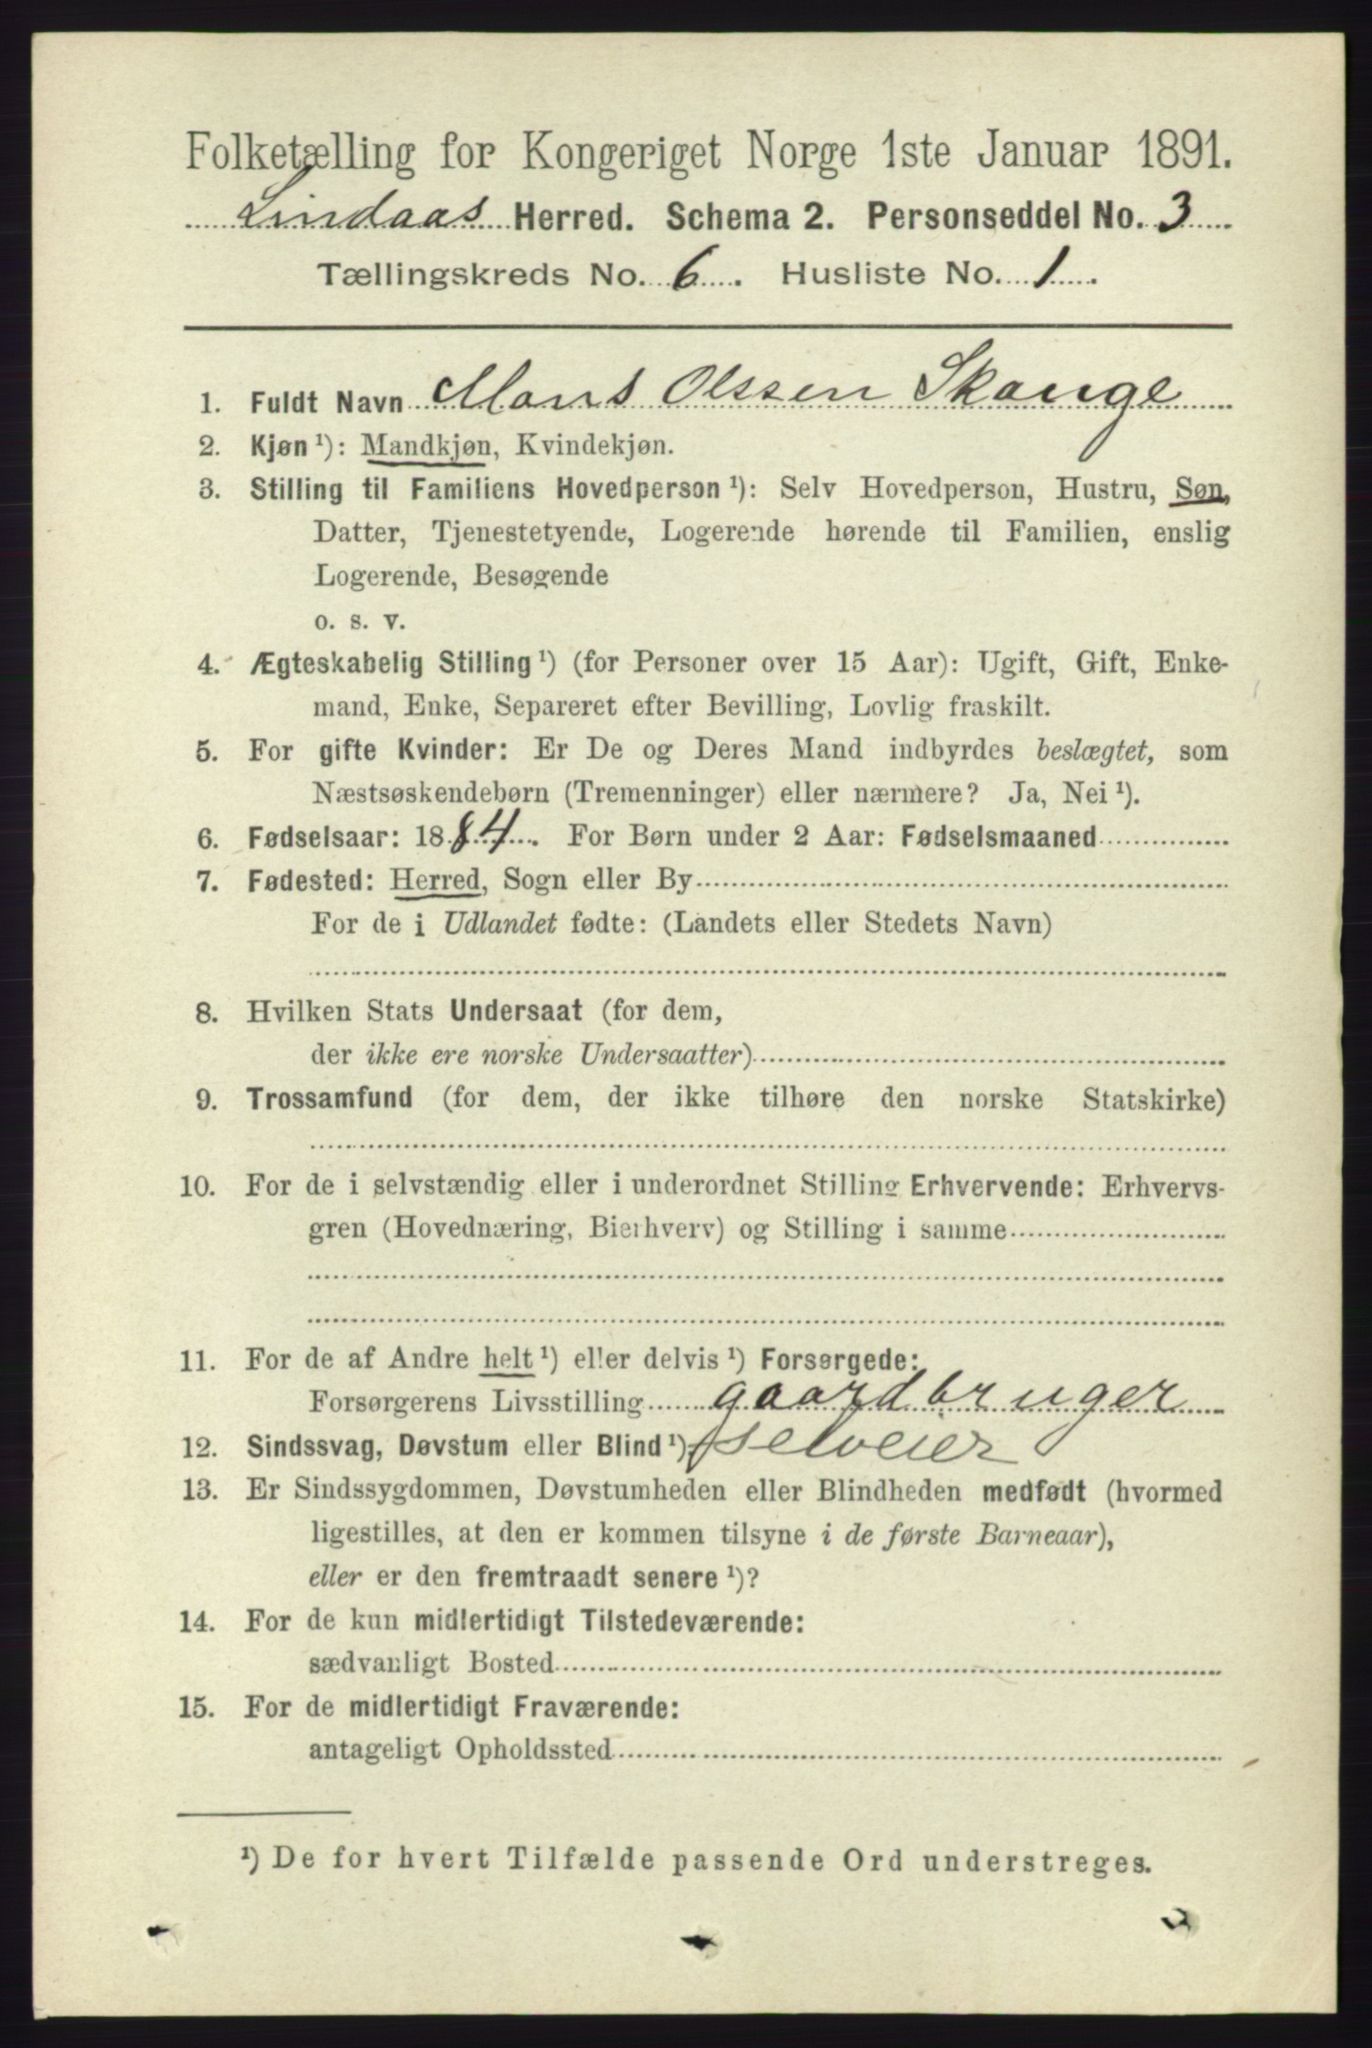 Folketælling for Kongeriget Norge 1ste Januar 1891.
Lindaas Herred. Schema 2. Personseddel No. 3
Tællingskreds No. 6. Husliste No. 1.
1. Fuldt Navn Mons Olssen Skauge
2. Kjøn ¹): Mandkjøn, Kvindekjøn.
3. Stilling til Familiens Hovedperson ¹): Selv Hovedperson, Hustru, Søn,
Datter, Tjenestetyende, Logerende hørende til Familien, enslig
Logerende, Besøgende
o. s. v.
4. Ægteskabelig Stilling ¹) (for Personer over 15 Aar): Ugift, Gift, Enke-
mand, Enke, Separeret efter Bevilling, Lovlig fraskilt.
5. For gifte Kvinder: Er De og Deres Mand indbyrdes beslægtet, som
Næstsøskendebørn (Tremenninger) eller nærmere? Ja, Nei ¹).
6. Fødselsaar: 1884. For Børn under 2 Aar: Fødselsmaaned
7. Fødested: Herred, Sogn eller By
For de i Udlandet fødte: (Landets eller Stedets Navn)
8. Hvilken Stats Undersaat (for dem,
der ikke ere norske Undersaatter)
9. Trossamfund (for dem, der ikke tilhøre den norske Statskirke)
10. For de i selvstændig eller i underordnet Stilling Erhvervende: Erhvervs-
gren (Hovednæring, Bierhverv) og Stilling i samme
11. For de af Andre helt ¹) eller delvis ¹) Forsørgede:
Forsørgerens Livsstilling gaardbruger
12. Sindssvag, Døvstum eller Blind ¹) selveier
13. Er Sindssygdommen, Døvstumheden eller Blindheden medfødt (hvormed
ligestilles, at den er kommen tilsyne i de første Barneaar),
eller er den fremtraadt senere ¹)?
14. For de kun midlertidigt Tilstedeværende:
sædvanligt Bosted
15. For de midlertidigt Fraværende:
antageligt Opholdssted
¹) De for hvert Tilfælde passende Ord understreges.